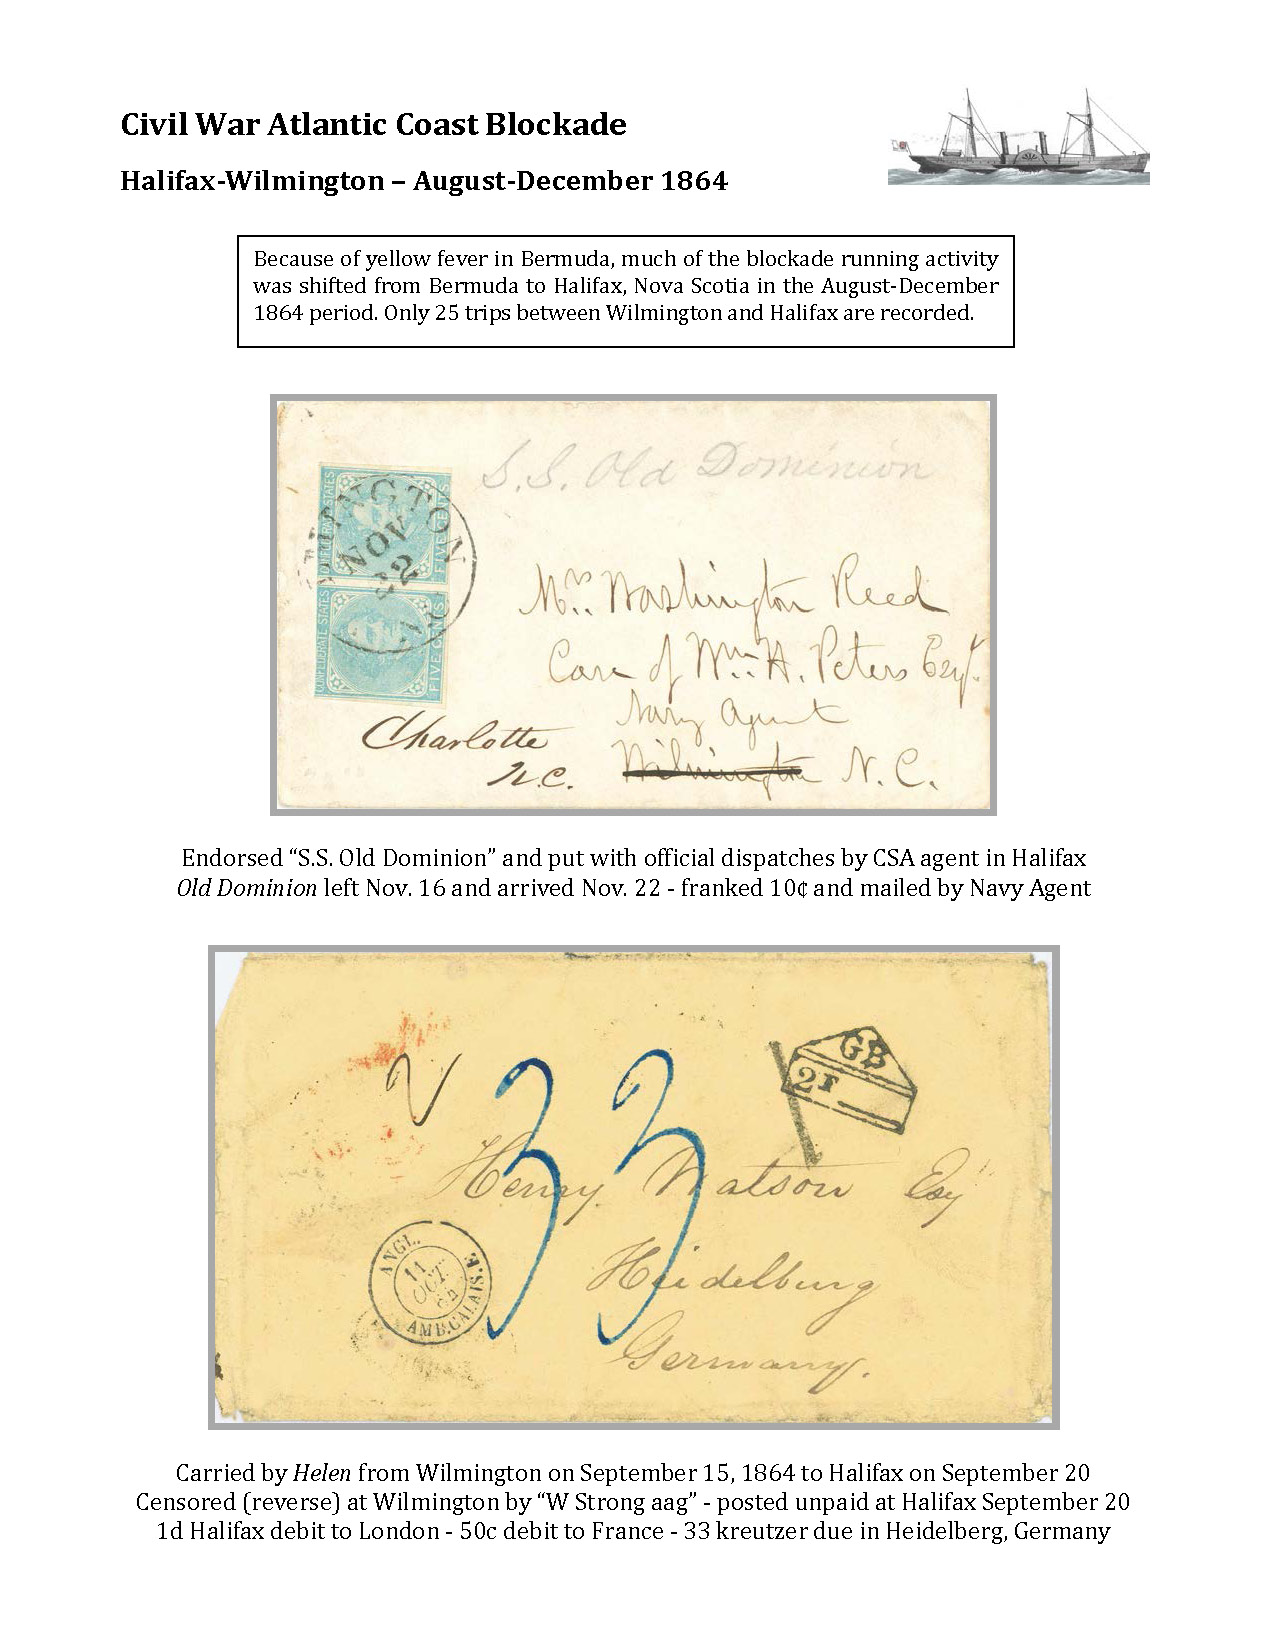 Civil War Atlantic Coast Blockade
Halifax-Wilmington – August-December 1864
Because of yellow fever in Bermuda, much of the blockade running activity
was shifted from Bermuda to Halifax, Nova Scotia in the August-December
1864 period. Only 25 trips between Wilmington and Halifax are recorded.
S.S. Old Dominion
CONFEDERATE STATES
FIVE CENTS
CONFEDERATE STATES
FIVE CENTS
MINGTON
NOV
22
Mrs. Washington Reed
Care of Wm. H. Peters Esqr.
Navy Agent
Wilmington N.C.
Charlotte
N.C.
Endorsed “S.S. Old Dominion” and put with official dispatches by CSA agent in Halifax
Old Dominion left Nov. 16 and arrived Nov. 22 - franked 10¢ and mailed by Navy Agent
GB
2F
33
Henry Watson Esq
Heidelburg
Germany.
ANGL.
11
OCT.
64
AMB.CALAIS.E
Carried by Helen from Wilmington on September 15, 1864 to Halifax on September 20
Censored (reverse) at Wilmington by “W Strong aag” - posted unpaid at Halifax September 20
1d Halifax debit to London - 50c debit to France - 33 kreutzer due in Heidelberg, Germany